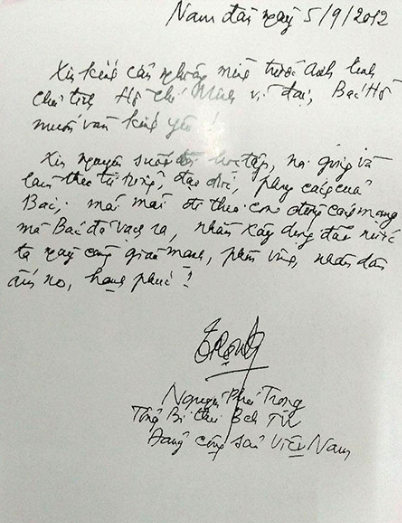 Nam đàn ngày 5/9/2012
Xin kính cẩn nghiêng mình trước anh linh
Chủ tịch Hồ Chí Minh vĩ đại, Bác Hồ
muôn vàn kính yêu!
Xin nguyện suốt đời học tập, noi gương và
làm theo tư tưởng, đạo đức, phong cách của
Bác; mãi mãi đi theo con đường cách mạng
mà Bác đã vạch ra, nhằm xây dựng đất nước
ta ngày càng giàu mạnh, phồn vinh, nhân dân
ấm no, hạnh phúc!
Trọng
Nguyễn Phú Trọng
Tổng Bí thư Bch TW
Đảng cộng sản Việt Nam